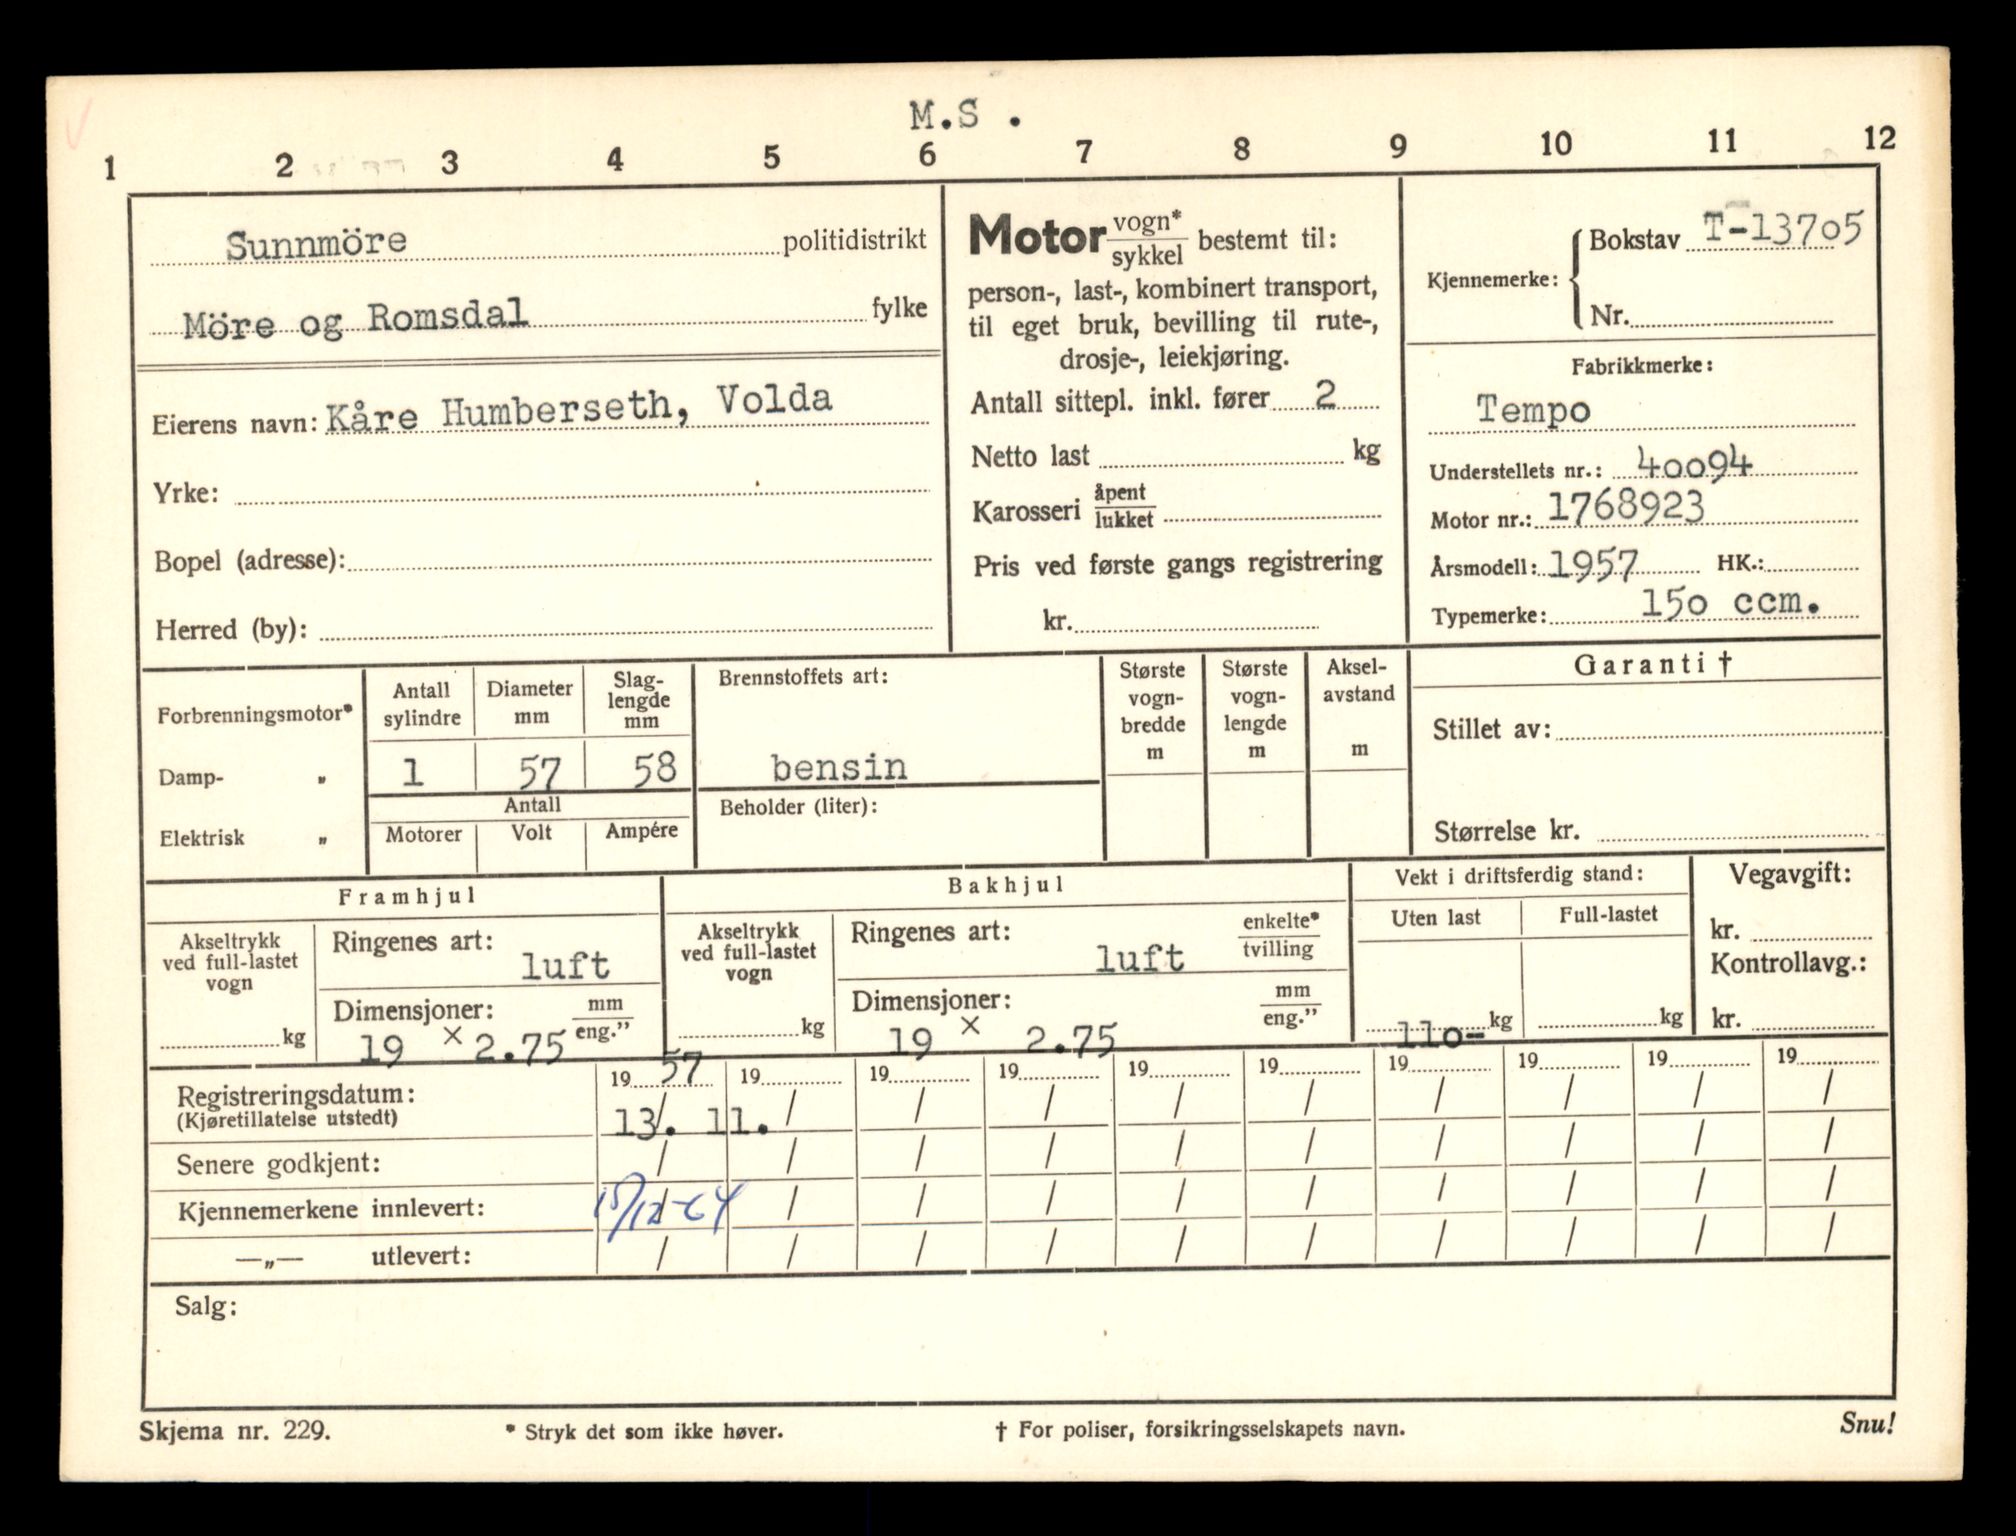 M.S .
1 2 3 4 5 6 7 8 9 10 11 12
Sunnmöre politidistrikt
Möre og Romsdal fylke
Eierens navn: Kåre Humberseth, Volda
Yrke:
Bopel (adresse):
Herred (by):
Motor vogn* / sykkel bestemt til:
person-, last-, kombinert transport,
til eget bruk, bevilling til rute-,
drosje-, leiekjøring.
Antall sittepl. inkl. fører 2
Netto last kg
Karosseri åpent / lukket
Pris ved første gangs registrering
kr.
Kjennemerke: Bokstav T-13705
Nr.
Fabrikkmerke:
Tempo
Understellets nr.: 40094
Motor nr.: 1768923
Årsmodell: 1957 HK.:
Typemerke: 150 ccm.
Forbrenningsmotor*
Damp- „
Elektrisk „
Antall sylindre
Diameter mm
Slag- lengde mm
1 57 58
Antall
Motorer Volt Ampére
Brennstoffets art:
bensin
Beholder (liter):
Største vogn- bredde m
Største vogn- lengde m
Aksel- avstand m
Garanti †
Stillet av:
Størrelse kr.
Framhjul
Akseltrykk ved full-lastet vogn
kg
Ringenes art:
luft
Dimensjoner: mm / eng.”
19 x 2.75
Bakhjul
Akseltrykk ved full-lastet vogn
kg
Ringenes art: enkelte* / tvilling
luft
Dimensjoner: mm / eng.”
19 x 2.75
Vekt i driftsferdig stand:
Uten last Full-lastet
110- kg kg
Vegavgift:
kr.
Kontrollavg.:
kr.
19 57 19 19 19 19 19 19 19 19 19
Registreringsdatum:
(Kjøretillatelse utstedt)
13. 11. / / / / / / / / / /
Senere godkjent: / / / / / / / / / /
Kjennemerkene innlevert: 15/12-64 / / / / / / / / / /
—„— utlevert: / / / / / / / / / /
Salg:
Skjema nr. 229. * Stryk det som ikke høver. † For poliser, forsikringsselskapets navn. Snu!